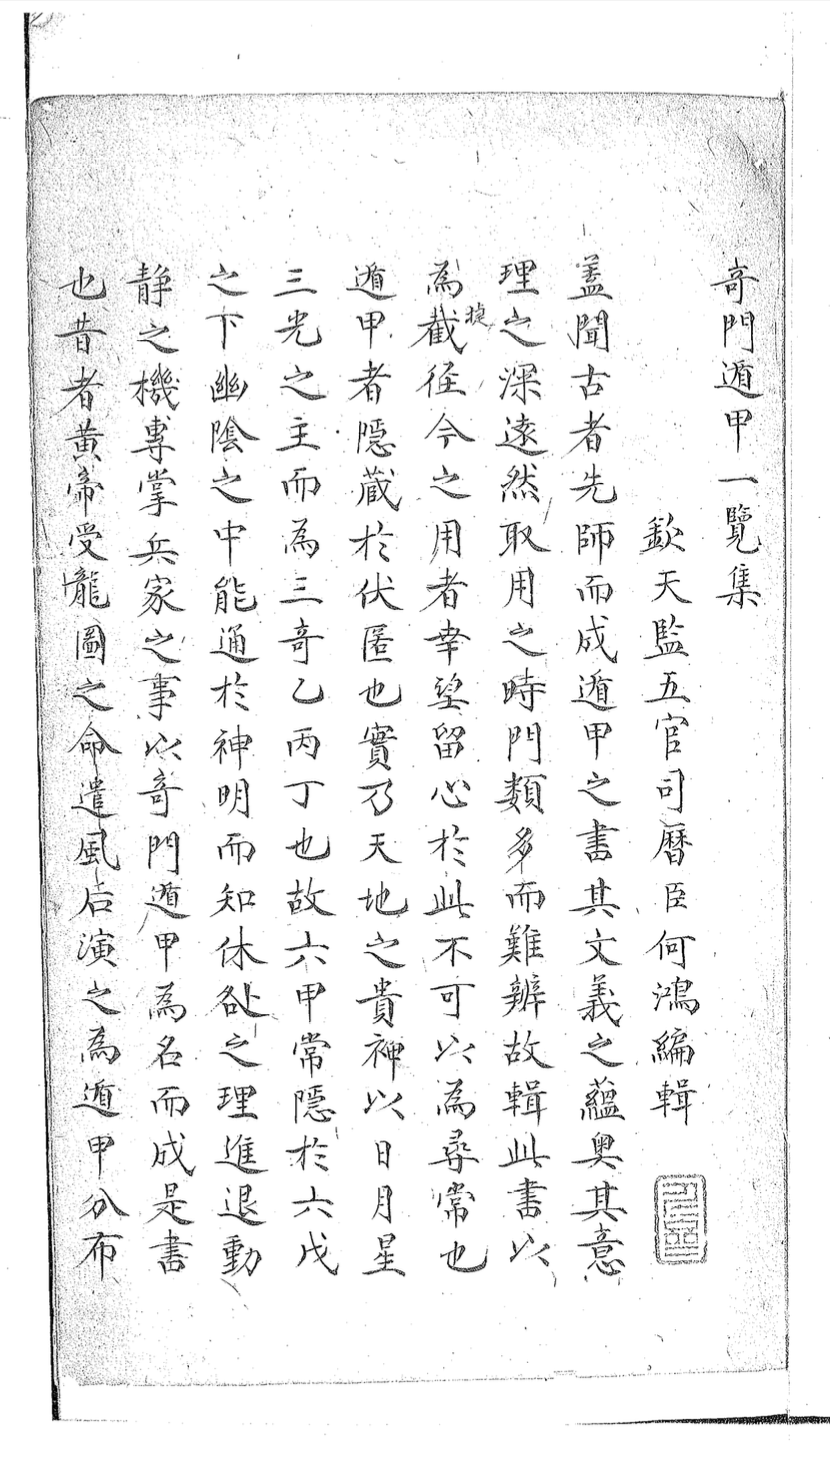 奇門遁甲一覽集
欽天監五官司曆臣何鴻編輯
蓋聞古者先師而成遁甲之書其文義之蘊奧其意
理之深遠然取用之時門類多而難辨故輯此書以
為截徑今之用者幸望留心於此不可以為尋常也
捷
遁甲者隱藏於伏匿也實乃天地之貴神以日月星
三光之主而為三奇乙丙丁也故六甲常隱於六戊
之下幽陰之中能通於神明而知休咎之理進退動
靜之機專掌兵家之事以奇門遁甲為名而成是書
也昔者黃帝受龍圖之命遣風后演之為遁甲分布